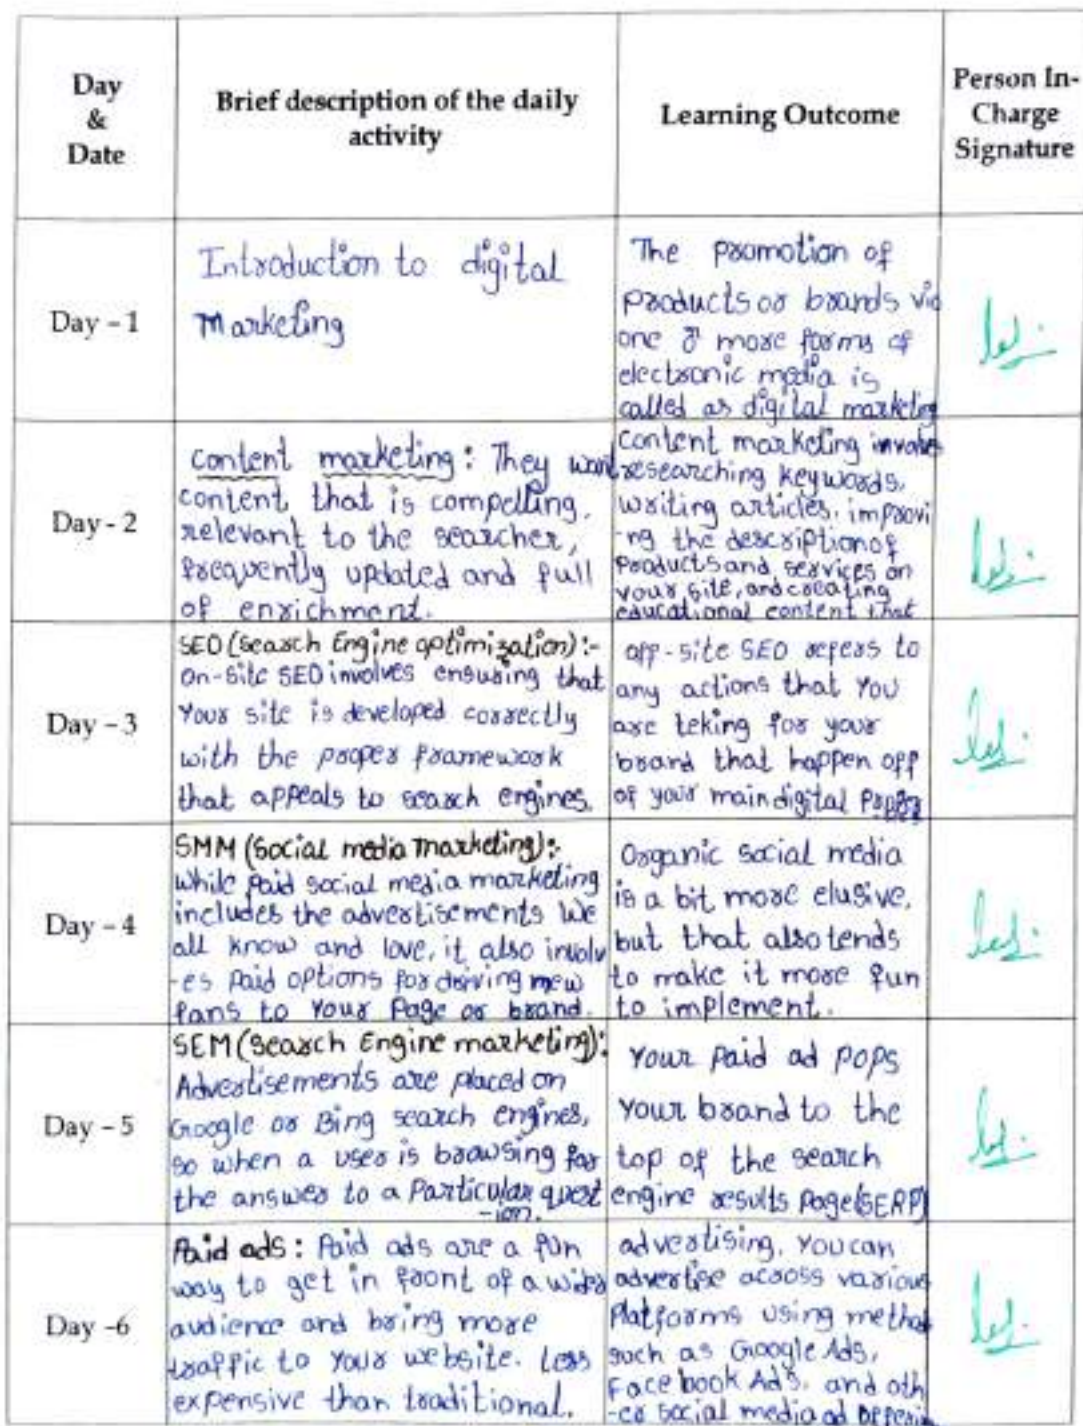 Day
&
Date
Brief description of the daily
activity
Learning Outcome
Person In-
Charge
Signature
Day - 1
Introduction to digital
Marketing
The promotion of
products or brands via
one or more forms of
electronic media is
called as digital marketing
Day - 2
content marketing: They want
content that is compelling,
relevant to the searcher,
frequently updated and full
of enrichment.
Content marketing involves
researching keywords,
writing articles, improvi
-ng the description of
products and services on
your site, and creating
educational content that
Day - 3
SEO (Search Engine optimization):-
on-site SEO involves ensuring that
your site is developed correctly
with the proper framework
that appeals to search engines.
off-site SEO refers to
any actions that you
are teking for your
brand that happen off
of your main digital
Day - 4
SMM (Social media marketing):-
While paid social media marketing
includes the advertisements we
all know and love, it also involv
-es paid options for driving new
fans to your page or brand.
Organic social media
is a bit more elusive,
but that also tends
to make it more fun
to implement.
Day - 5
SEM (Search Engine marketing):
Advertisements are placed on
Google or Bing search engines,
so when a user is browsing for
the answer to a particular quest
-ion.
Your paid ad pops
your brand to the
top of the search
engine results page (SERP)
Day -6
Paid ads: Paid ads are a fun
way to get in front of a wider
audience and bring more
traffic to your website. Less
expensive than traditional.
advertising, You can
advertise across various
platforms using method
such as Google Ads,
Facebook Ads, and oth
-er social media ad